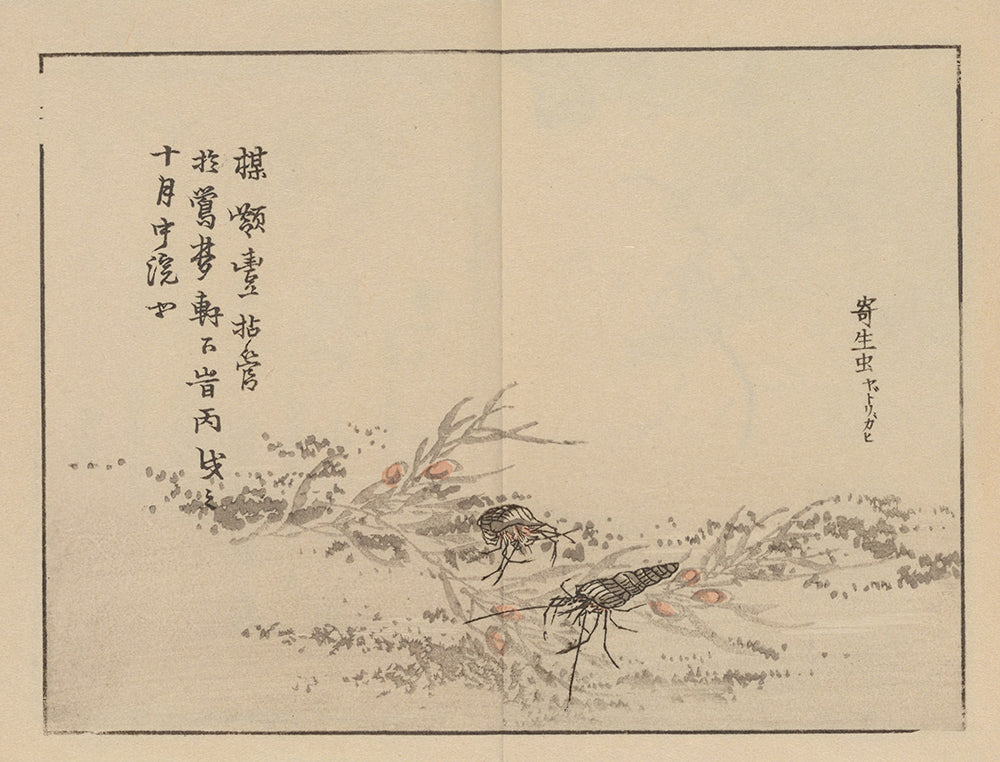 寄生虫 ヤドリガヒ
楳嶺豊拈管
於鶯夢軒下旹丙戌之
十月中浣也